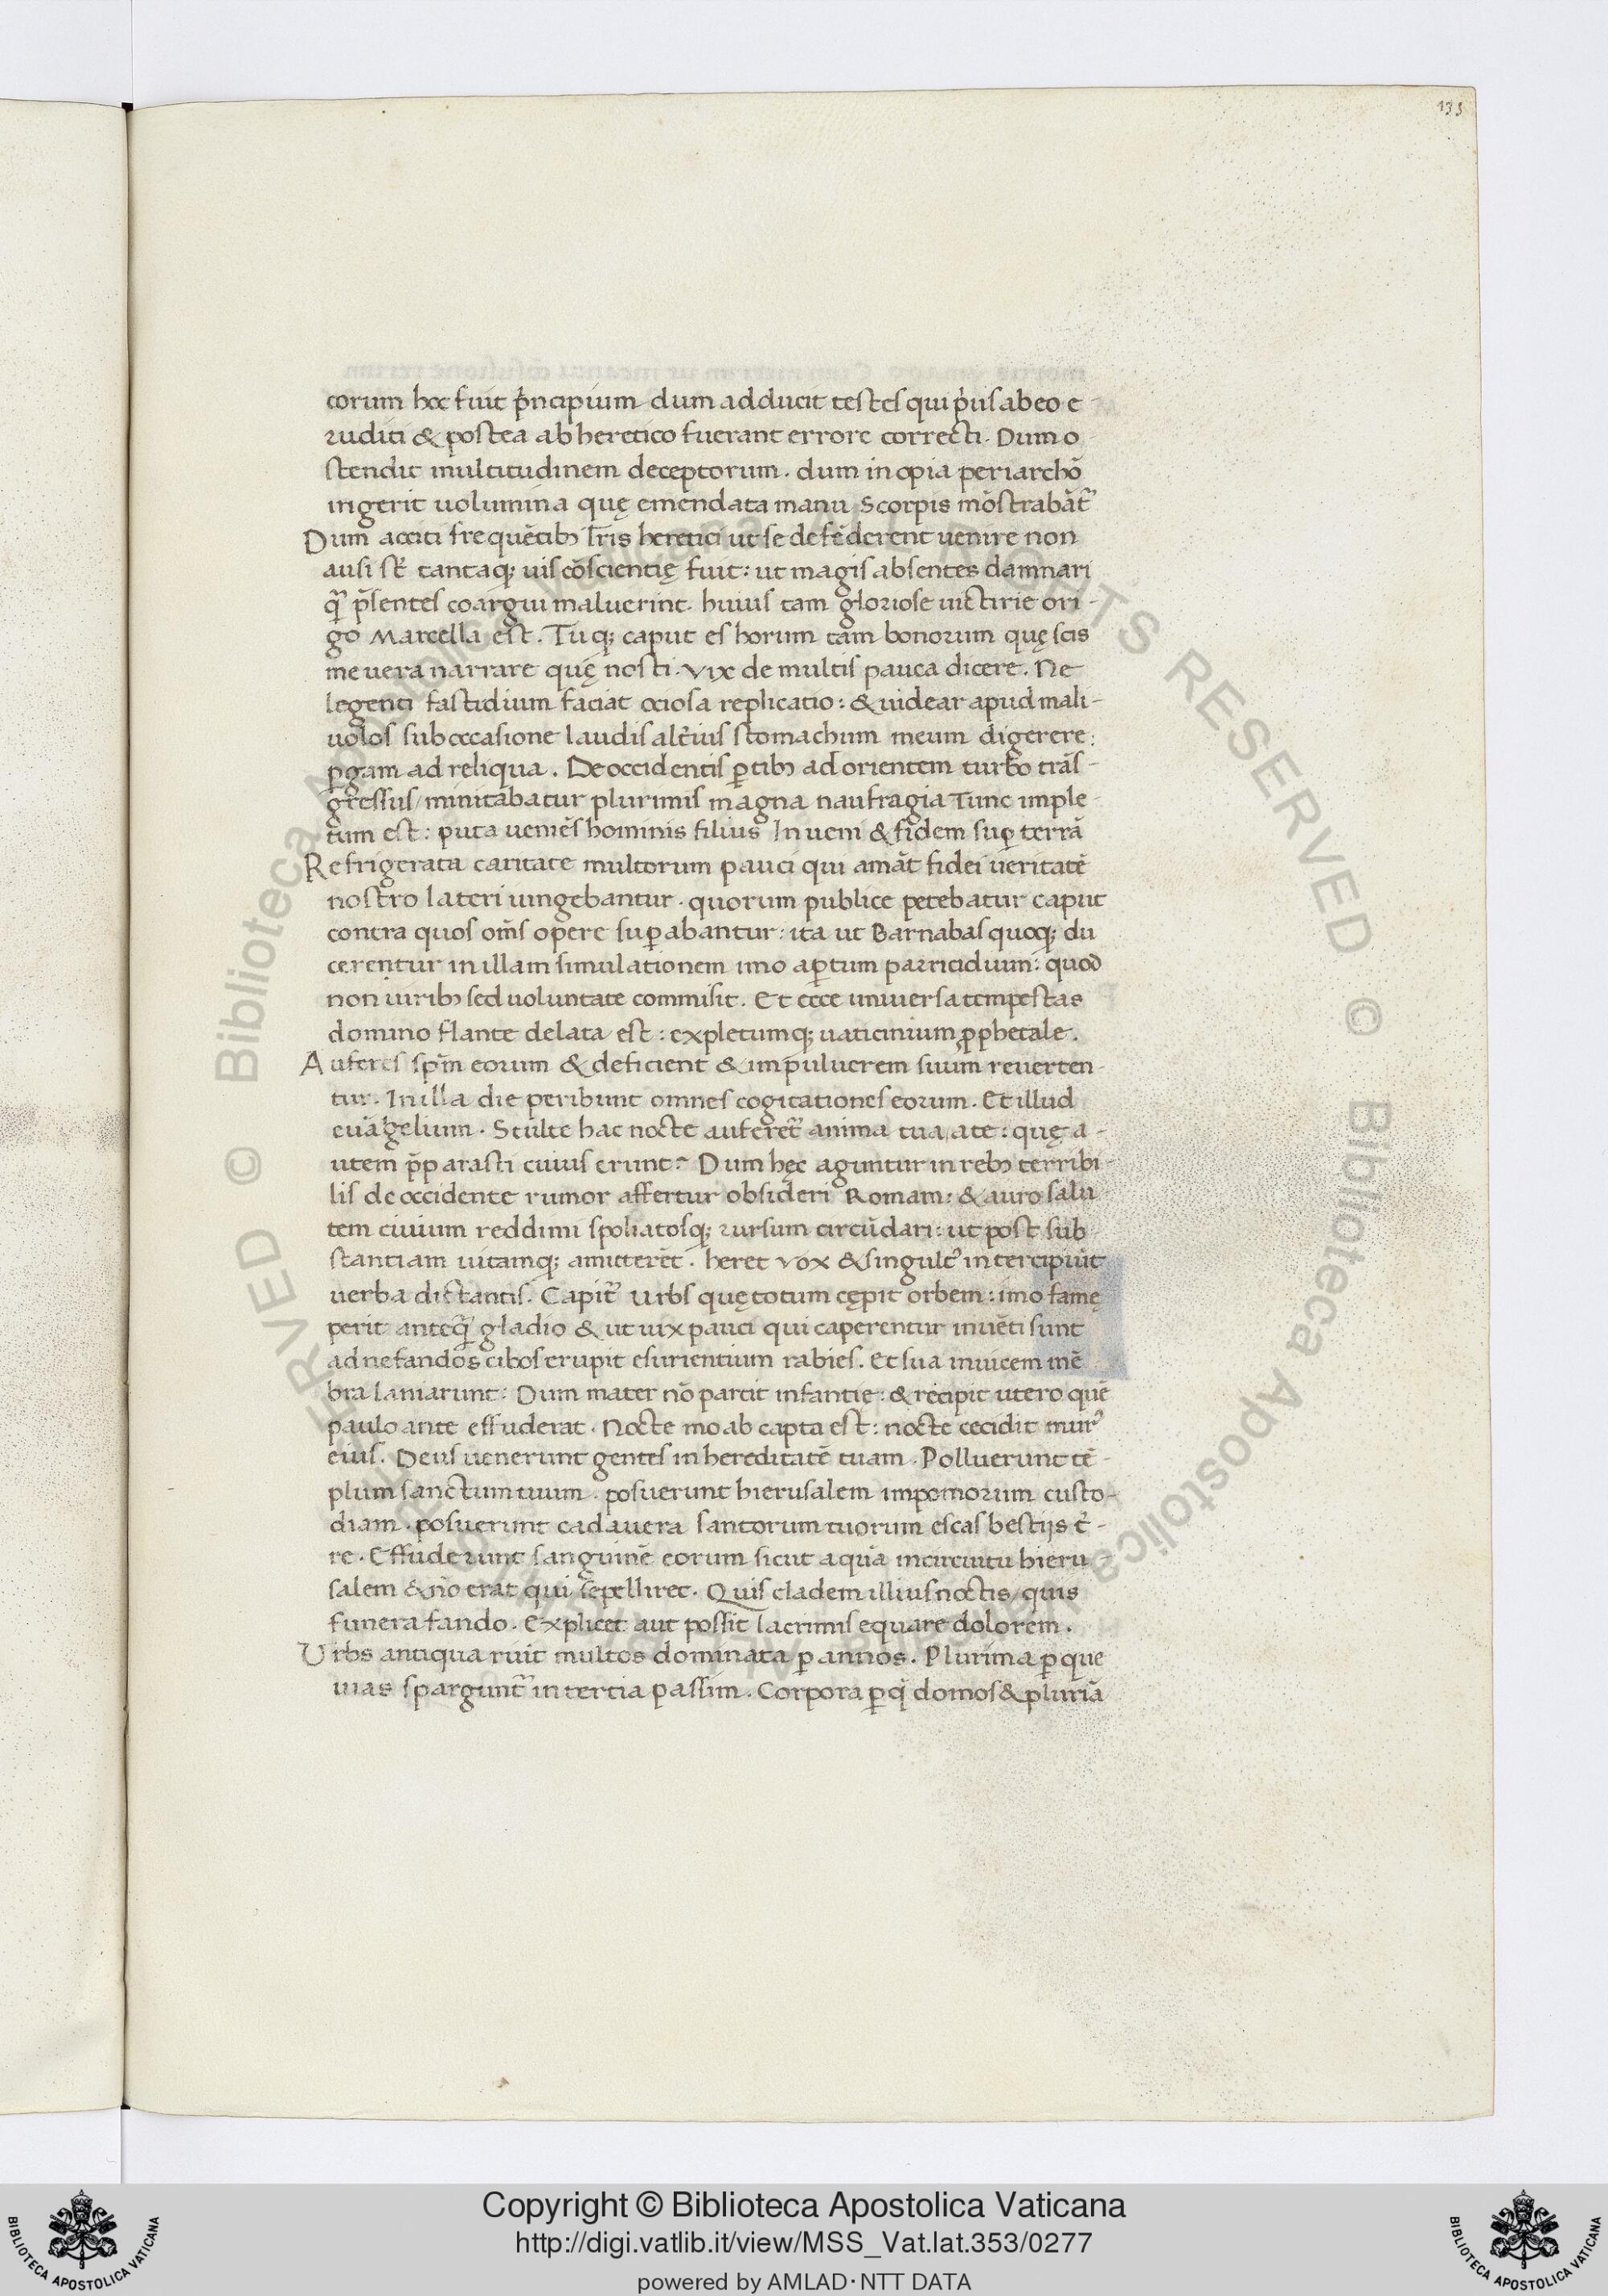 135
corum hoc fuit p̃ncipium dum adducit testes qui p̃us ab eo e-
ruditi & postea ab heretico fuerant errore correcti. Dum o-
stendit multitudinem deceptorum. dum in opia periarchō
ingerit uolumina quę emēndata manu Scorpis mōstrabāt᷑
Dum acciti frequētibꝫ l̃ris heretici ut se defēderent uenire non
ausi st̃ tantaqꝫ uis cōscientię fuit: ut magis absentes damnari
q̃ p̃sentes coargui maluerint. huius tam gloriose uictirie ori-
go Marcella est. Tuqꝫ caput es horum tam bonorum quę scis
me uera narrare quę nosti. vix de multis pauca dicere. Ne
legenti fastidium faciat ociosa replicatio: & uidear apud mali-
uolos sub occasione laudis alt̃ius stomachum meum digerere:
ꝑgam ad reliqua. De occidentis ꝑtibꝫ ad orientem turbo trās-
gressus/ minitabatur plurimis magna naufragia Tunc imple-
tum est: puta ueniēs hominis filius Inueni & fidem suꝑ terrā
Refrigerata caritate multorum pauci qui amāt fidei ueritatē
nostro lateri uingebantur. quorum publice petebatur caput
contra quos om̃s opere suꝑabantur: ita ut Barnabas quoqꝫ du
cerentur in illam simulationem imo aꝑtum parricidium: quod
non uiribꝫ sed uoluntate commisit. Et ecce uniuersa tempestas
domino flante delata est: expletumqꝫ uaticinium ꝓphetale.
Auferes sp̃m eorum & deficient & impuluerem suum reuerten-
tur. In illa die peribunt omnes cogitationes eorum. Et illud
euāgelium. Stulte hac nocte auferet᷑ anima tua ate: quę a-
utem p̃parasti cuius erunt? Dum hęc aguntur in rebꝫ terribi-
lis de occidente rumor affertur obsideri Romam: & auro salu
tem ciuium reddimi spoliatosqꝫ rursum circūdari: ut post sub
stantiam uitamqꝫ amitterēt. heret vox & singultꝰ intercipiūt
uerba dictantis. Capit᷑ Urbs quę totum cępit orbem: imo famę
perit anteq̃ gladio & ut uix pauci qui caperentur inuēti sunt
ad nefandos cibos erupit esurientium rabies. Et sua inuicem mē
bra laniarunt: Dum mater nō parcit infantię: & recipit utero quē
paulo ante effuderat. Nocte moab capta est: nocte cecidit murꝰ
eius. Deus uenerunt gentes in hereditatē tuam. Polluerunt tē-
plum sanctum tuum. posuerunt hierusalem impomorum custo-
diam. posuerunt cadauera santorum tuorum escas bestijs t̃-
re. Effuderunt sanguinē eorum sicut aquā incircuitu hieru
salem & nō erat qui sepelliret. Quis cladem illius noctis/ quis
funera fando. Explicet aut possit lacrimis equare dolorem.
Urbs antiqua ruit multos dominata ꝑ annos. Plurima ꝑque
uias spargunt᷑ in tertia passim. Corpora ꝑq̃ domos & plurīa
Copyright © Biblioteca Apostolica Vaticana
http://digi.vatlib.it/view/MSS_Vat.lat.353/0277
powered by AMLAD·NTT DATA
BIBLIOTECA APOSTOLICA VATICANA
BIBLIOTECA APOSTOLICA VATICANA